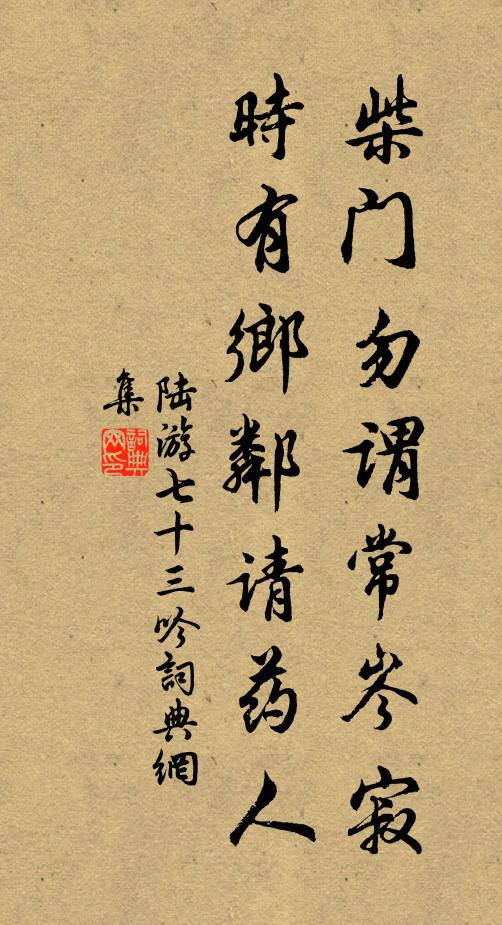 柴门勿谓常岑寂
時有鄉鄰请药人
陆游七十三吟詞典網
集
詞典网印